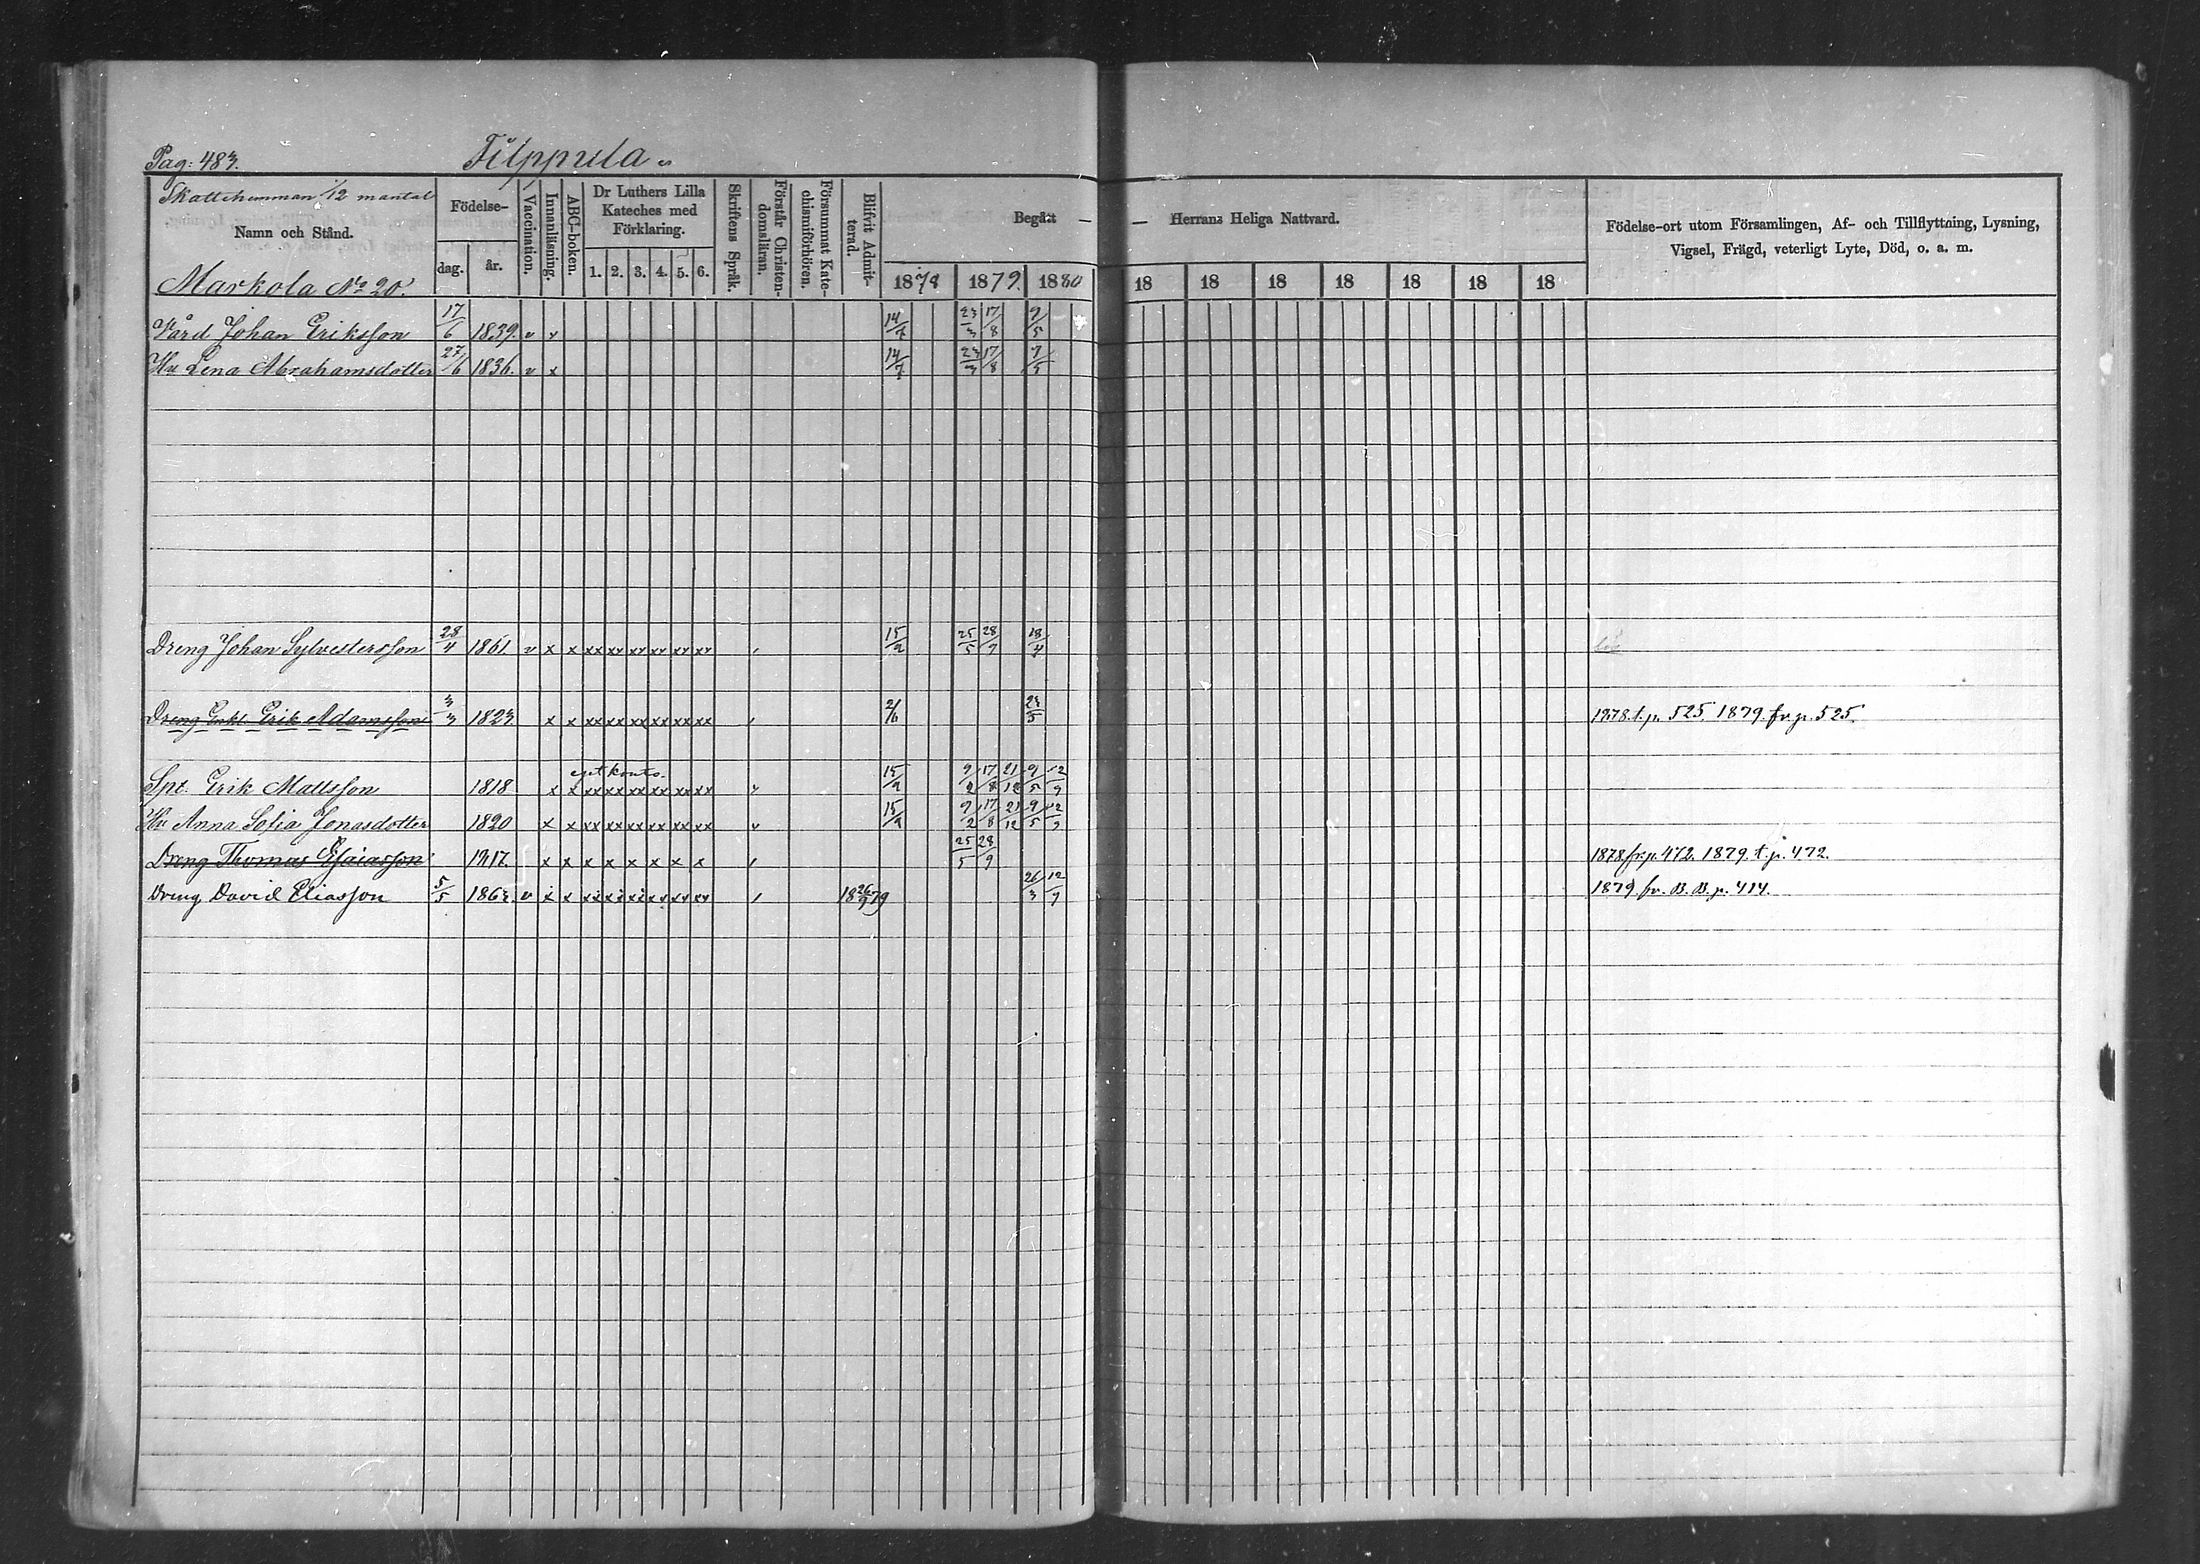 Pag: 483. Filppula
Skattehemman 1/12 mantal
Namn och Stånd.
Markola No 20.
Födelse-
dag. år.
Vaccination.
Innanläsning.
ABC-boken.
Dr Luthers Lilla
Kateches med
Förklaring.
1. 2. 3. 4. 5. 6.
Skriftens Språk.
Förstår Christen-
domsläran.
Försummat Kate-
chismiförhören.
Blifvit Admit-
terad.
Begått — — Herrans Heliga Nattvard.
1878 1879 1880 18 18 18 18 18 18 18
Födelse-ort utom Församlingen, Af- och Tillflyttning, Lysning,
Vigsel, Frägd, veterligt Lyte, Död, o. a. m.
Vård Johan Eriksson 17/6 1839. v x 14/7 23/3 17/8 9/5
Hu Lena Abrahamsdotter 27/6 1836. v x 14/7 23/3 17/8 9/5
Dreng Johan Sylvestersson 28/4 1861. v x x xx xx xx xx xx xx 15/9 25/5 28/9 18/4
Dreng Enkl. Erik Adamsson 3/3 1823 x x xx xx xx xx xx xx 2/6 23/5 1878. t. p. 525. 1879. fr. p. 525.
Spt. Erik Mattsson 1818 x x xx xx xx xx xx xx v 15/9 9/2 17/8 21/12 9/5 12/9
Hu Anna Sofia Jonasdotter 1820 x x xx xx xx xx xx xx v 15/9 9/2 17/8 21/12 9/5 12/9
Dreng Thomas Esaiasson 1817. x x x x x x x x 25/5 28/9 1878. fr. p. 472. 1879. t. p. 472.
Dreng David Eliasson 5/5 1863. v x x xx xx xx xx xx xx 18 26/9 79 26/3 12/9 1879 fr. B. B. p. 414.